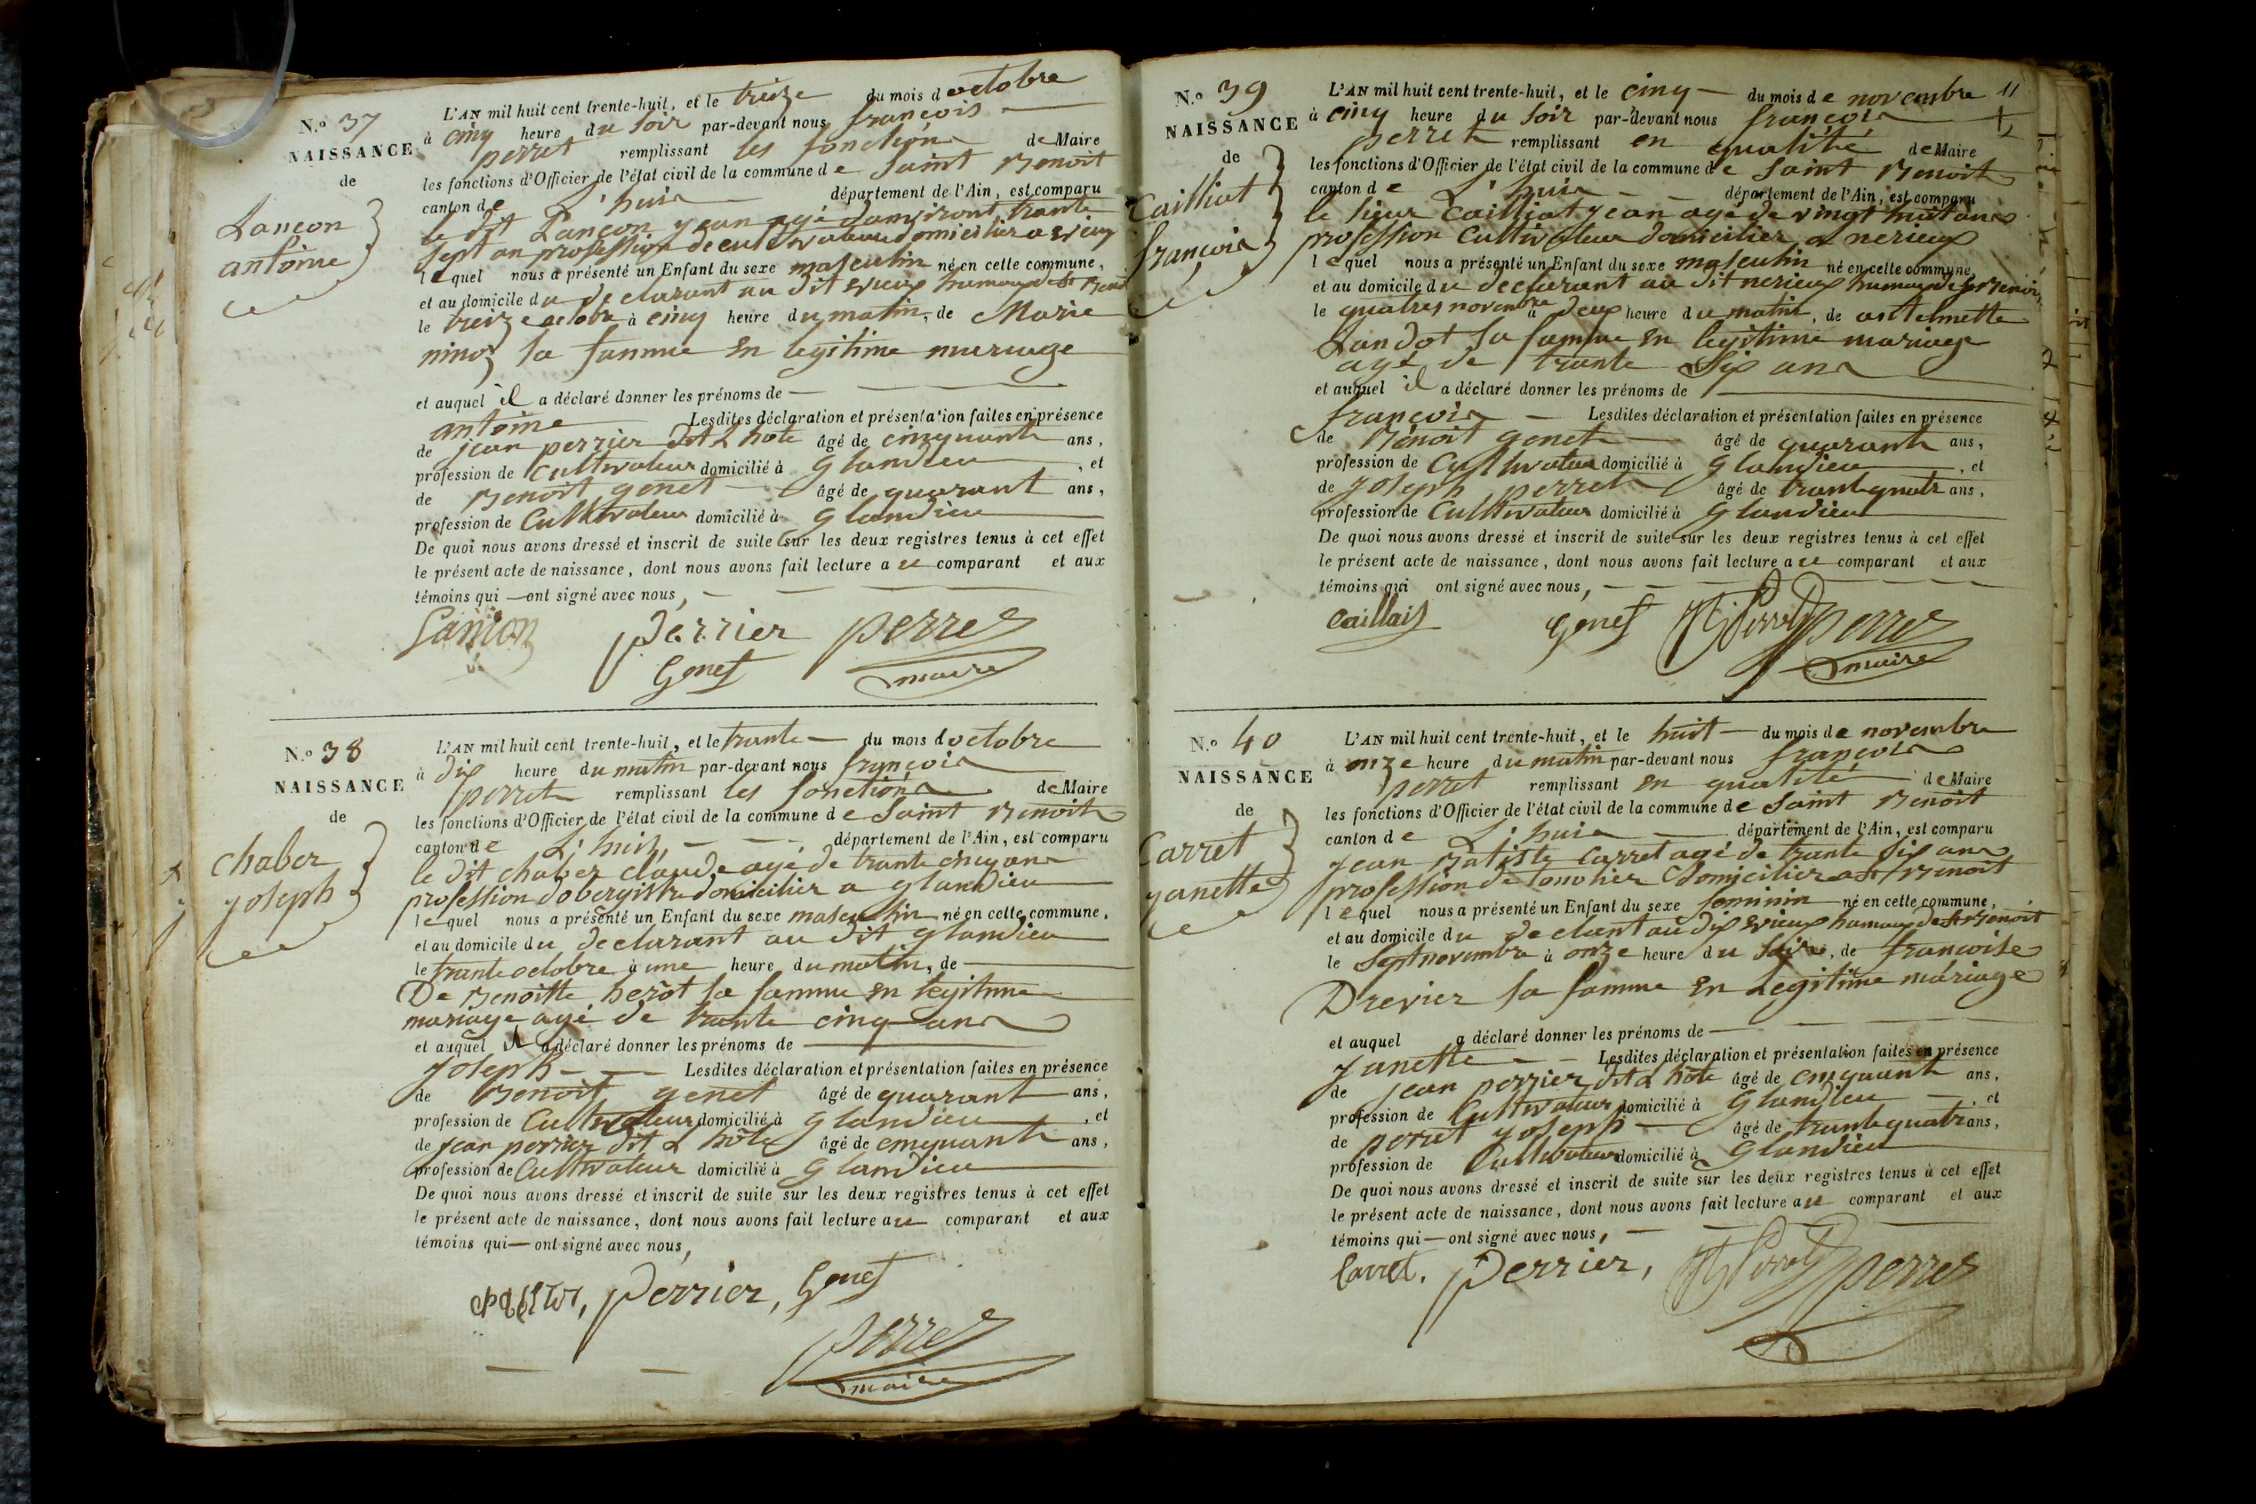 N.º 37
NAISSANCE
de
Lançon
antoine
L'AN mil huit cent trente-huit, et le treize du mois d octobre
à cinq heure du soir par-devant nous françois
perret remplissant les fonctions de Maire
les fonctions d'Officier de l'état civil de la commune de Saint Benoit
canton de L'huis département de l'Ain, est comparu
le dit Lançon jean agé danviront trante
sept an profession de cultivateur domicilier a
lequel nous a présenté un Enfant du sexe masculin né en cette commune,
et au domicile du declarant au dit hamau de St Benoit
le treize octobre à cinq heure du matin, de Marie
ninoz sa famme en legitime mariage
et auquel il a déclaré donner les prénoms de
antoine Lesdites déclaration et présentation faites en présence
de jean perrier dit L hote âgé de cinquante ans,
profession de Cultivateur domicilié à Glandieu, et
de Benoit genet âgé de quarant ans,
profession de Cultivateur domicilié à Glandieu
De quoi nous avons dressé et inscrit de suite sur les deux registres tenus à cet effet
le présent acte de naissance, dont nous avons fait lecture a ce comparant et aux
témoins qui ont signé avec nous,
Perrier perret
Genet maire
N.º 38
NAISSANCE
de
chaber
joseph
L'AN mil huit cent trente-huit, et le trante du mois d octobre
à dix heure du matin par-devant nous françois
perret remplissant les fonctions de Maire
les fonctions d'Officier de l'état civil de la commune de Saint Benoit
canton de L'huis département de l'Ain, est comparu
le dit chaber claude agé de trante cinq ans
profession dobergiste domicilier a glandieu
lequel nous a présenté un Enfant du sexe masculin né en cette commune,
et au domicile du declarant au dit glandieu
le trante octobre à une heure du matin, de
De Benoitte berot sa famme en legitime
mariage agé de trante cinq ans
et auquel il a déclaré donner les prénoms de
joseph Lesdites déclaration et présentation faites en présence
de Benoit genet âgé de quarant ans,
profession de Cultivateur domicilié à glandieu, et
de jean perrier dit L hôte âgé de cinquante ans,
profession de Cultivateur domicilié à Glandieu
De quoi nous avons dressé et inscrit de suite sur les deux registres tenus à cet effet
le présent acte de naissance, dont nous avons fait lecture a ce comparant et aux
témoins qui ont signé avec nous,
Perrier, Genet
perret
maire
N.º 39
NAISSANCE
de
Cailliat
françois
11
L'AN mil huit cent trente-huit, et le cinq du mois de novembre
à cinq heure du soir par-devant nous françois
perret remplissant en qualité de Maire
les fonctions d'Officier de l'état civil de la commune de Saint Benoit
canton de L'huis département de l'Ain, est comparu
le sieur Cailliat jean agé de vingt huit ans
profession Cultivateur domicilier a nerieux
lequel nous a présenté un Enfant du sexe masculin né en cette commune,
et au domicile du declarant au dit nerieux hamau de St Benoit
le quatres novembre a deux heure du matin, de antelmette
Landot sa famme en legitime mariage
agé de trante Six ans
et auquel il a déclaré donner les prénoms de
françois Lesdites déclaration et présentation faites en présence
de Benoit genet âgé de quarante ans,
profession de Cultivateur domicilié à Glandieu, et
de joseph perret âgé de trante quatr ans,
profession de Cultivateur domicilié à Glandieu
De quoi nous avons dressé et inscrit de suite sur les deux registres tenus à cet effet
le présent acte de naissance, dont nous avons fait lecture a ce comparant et aux
témoins qui ont signé avec nous,
Genet perret
maire
N.º 40
NAISSANCE
de
Carret
janette
L'AN mil huit cent trente-huit, et le huit du mois de novembre
à onze heure du matin par-devant nous françois
perret remplissant en qualité de Maire
les fonctions d'Officier de l'état civil de la commune de Saint Benoit
canton de L'huis département de l'Ain, est comparu
jean Batiste Carret agé de trante Six ans
profession de tonolier domicilier a St Benoit
lequel nous a présenté un Enfant du sexe feminin né en cette commune,
et au domicile du hamau de St Benoit
le Sept novembre à onze heure du Soire, de francoise
Drevier sa famme en Legitime mariage
et auquel a déclaré donner les prénoms de
janette Lesdites déclaration et présentation faites en présence
de jean perrier dit L hôte âgé de cinquante ans,
profession de Cultivateur domicilié à Glandieu, et
de perret joseph âgé de trante quatr ans,
profession de Cultivateur domicilié à Glandieu
De quoi nous avons dressé et inscrit de suite sur les deux registres tenus à cet effet
le présent acte de naissance, dont nous avons fait lecture a ce comparant et aux
témoins qui ont signé avec nous,
Carret. Perrier, perret